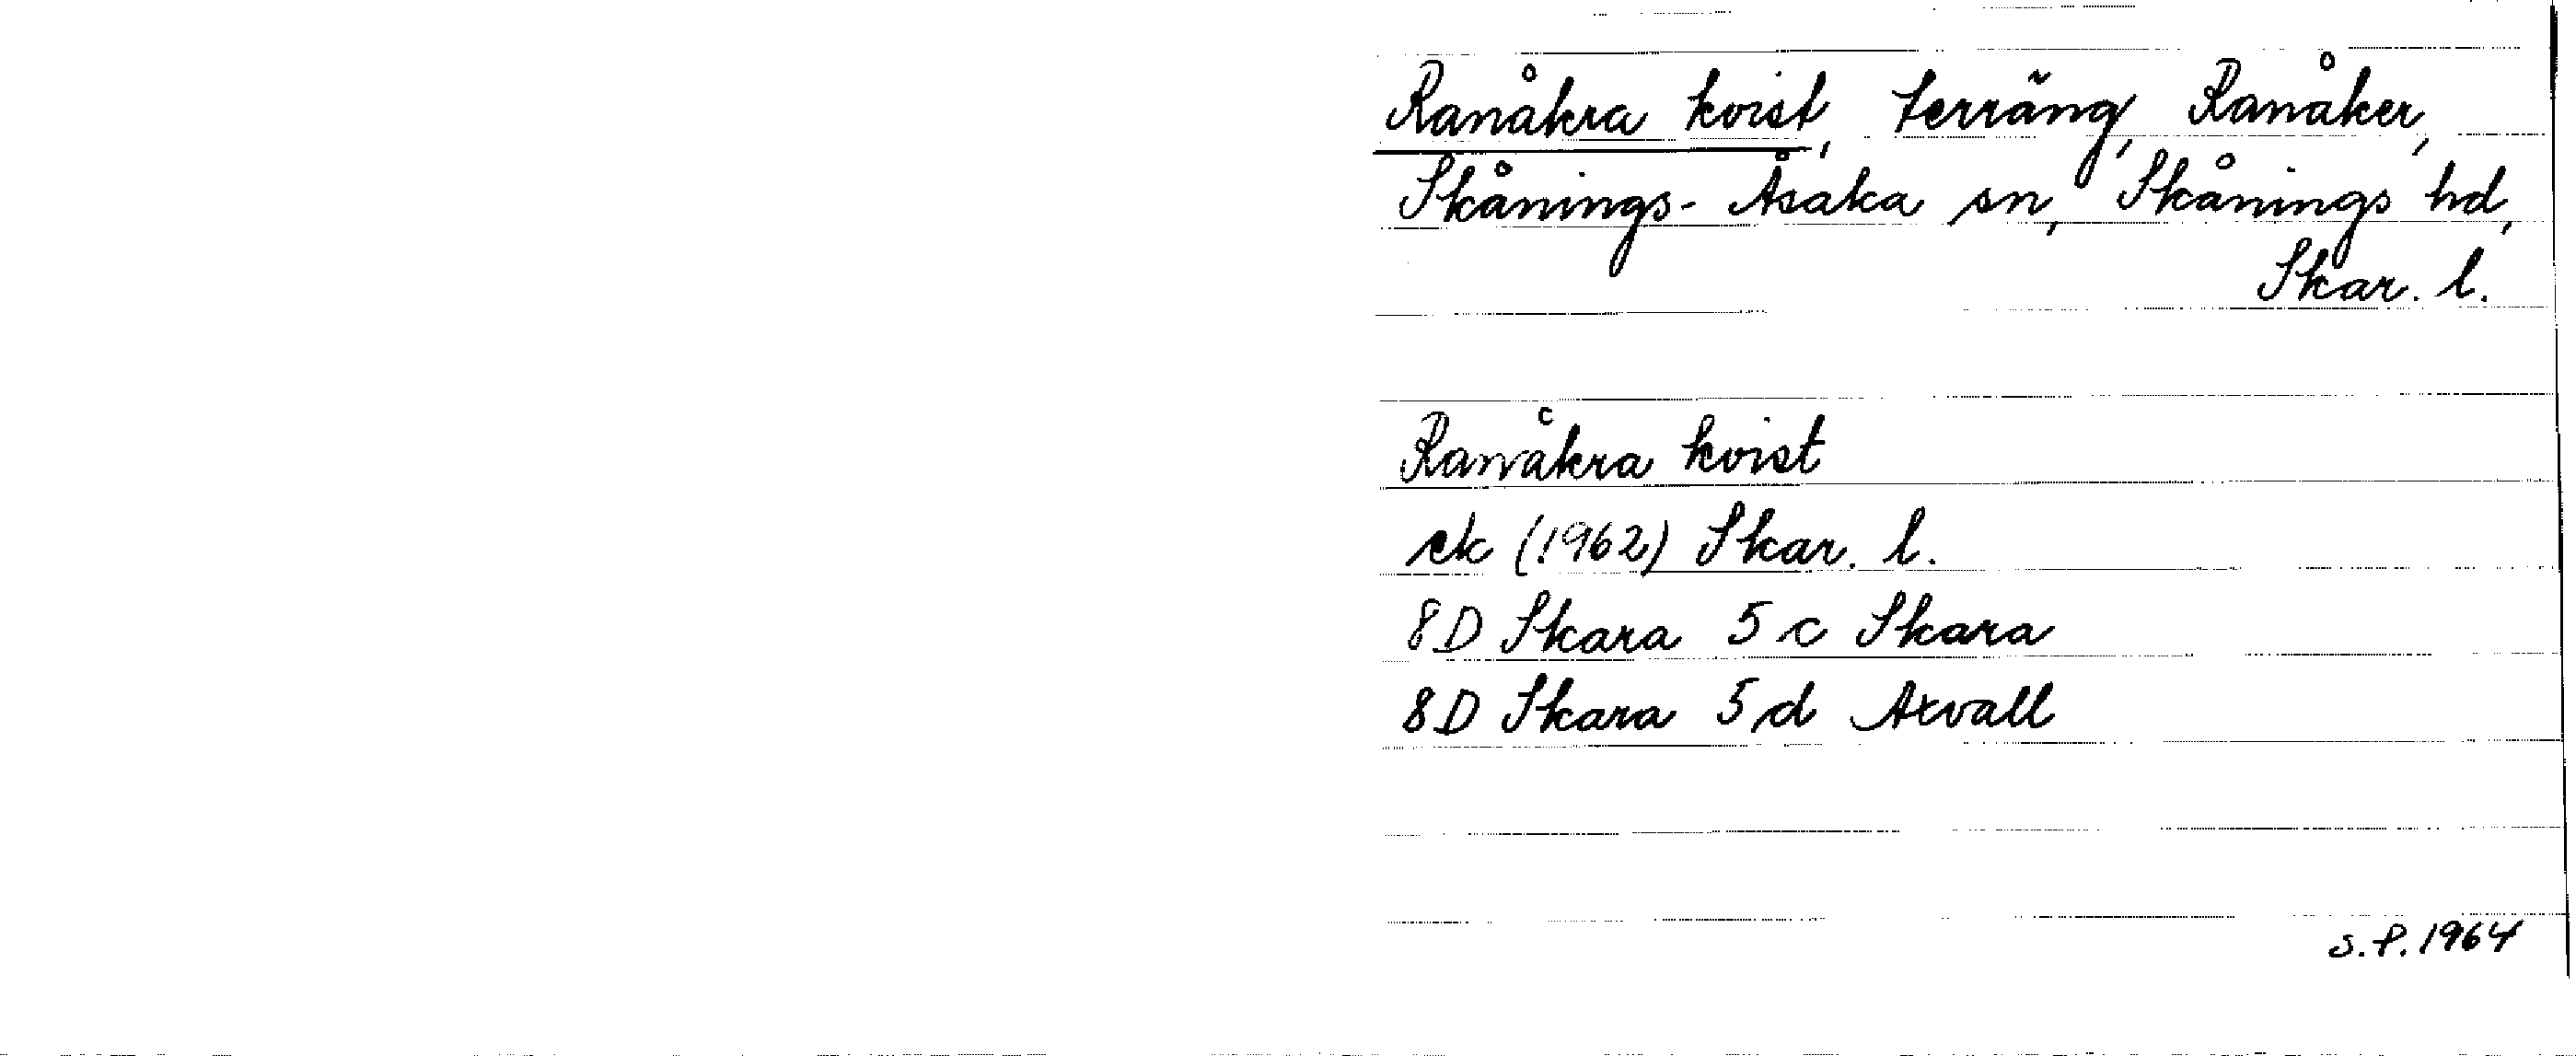 Ranåkra kvist, terräng, Ranåker,
Skånings-Åsaka sn, Skånings hd,
Skar. l.
Ranåkra kvist
ek (1962) Skar. l.
8D Skara 5c Skara
8D Skara 5d Axvall
S.P. 1964